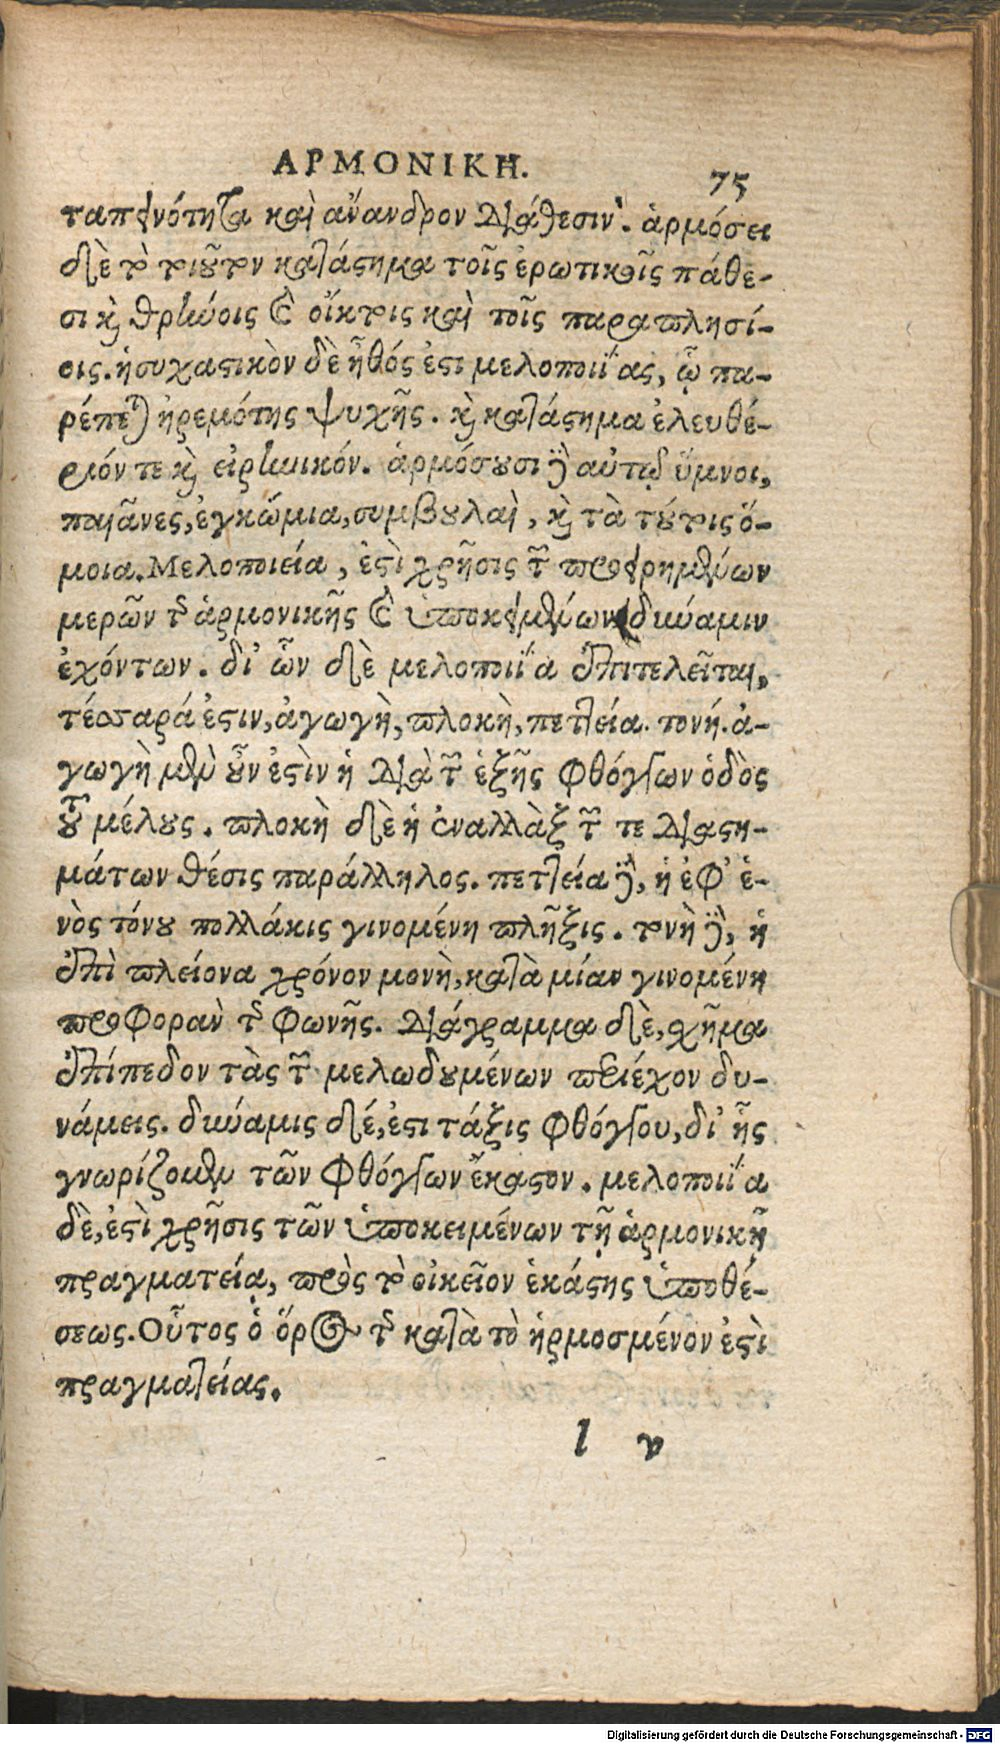 ΑΡΜΟΝΙΚΗ. 75
ταπεινότητα καὶ ἄνανδρον διάθεσιν. ἁρμόσει
δὲ τὸ τοιοῦτον κατάστημα τοῖς ἐρωτικοῖς πάθε-
σι καὶ θρήνοις καὶ οἴκτοις καὶ τοῖς παραπλησί-
οις. ἡσυχαστικὸν δὲ ἦθός ἐστι μελοποιΐας, ᾧ πα-
ρέπεται ἠρεμότης ψυχῆς. καὶ κατάστημα ἐλευθέ-
ριόν τε καὶ εἰρηνικόν. ἁρμόσουσι δὲ αὐτῷ ὕμνοι,
παιᾶνες, ἐγκώμια, συμβουλαὶ, καὶ τὰ τούτοις ὅ-
μοια. Μελοποιεία, ἐστὶ χρῆσις τῶν προειρημένων
μερῶν τῆς ἁρμονικῆς καὶ ὑποκειμένων δύναμιν
ἐχόντων. δι' ὧν δὲ μελοποιΐα ἐπιτελεῖται,
τέσσαρά ἐστιν, ἀγωγὴ, πλοκὴ, πεττεία. τονή. ἀ-
γωγὴ μὲν οὖν ἐστὶν ἡ διὰ τῶν ἑξῆς φθόγγων ὁδὸς
τοῦ μέλους. πλοκὴ δὲ ἡ ἐναλλὰξ τῶν τε διαστη-
μάτων θέσις παράλληλος. πεττεία δὲ, ἡ ἐφ' ἑ-
νὸς τόνου πολλάκις γινομένη πλῆξις. τονὴ δὲ, ἡ
ἐπὶ πλείονα χρόνον μονὴ, κατὰ μίαν γινομένη
προφορὰν τῆς φωνῆς. διάγραμμα δὲ, σχῆμα
ἐπίπεδον τὰς τῶν μελωδουμένων περιέχον δυ-
νάμεις. δύναμις δέ, ἐστι τάξις φθόγγου, δι' ἧς
γνωρίζομεν τῶν φθόγγων ἕκαστον. μελοποιΐα
δὲ, ἐστὶ χρῆσις τῶν ὑποκειμένων τῇ ἁρμονικῇ
πραγματεία, πρὸς τὸ οἰκεῖον ἑκάστης ὑποθέ-
σεως. Οὗτος ὁ ὅρος τῆς κατὰ τὸ ἡρμοσμένον ἐστὶ
πραγματείας.
l v
Digitalisierung gefördert durch die Deutsche Forschungsgemeinschaft - DFG